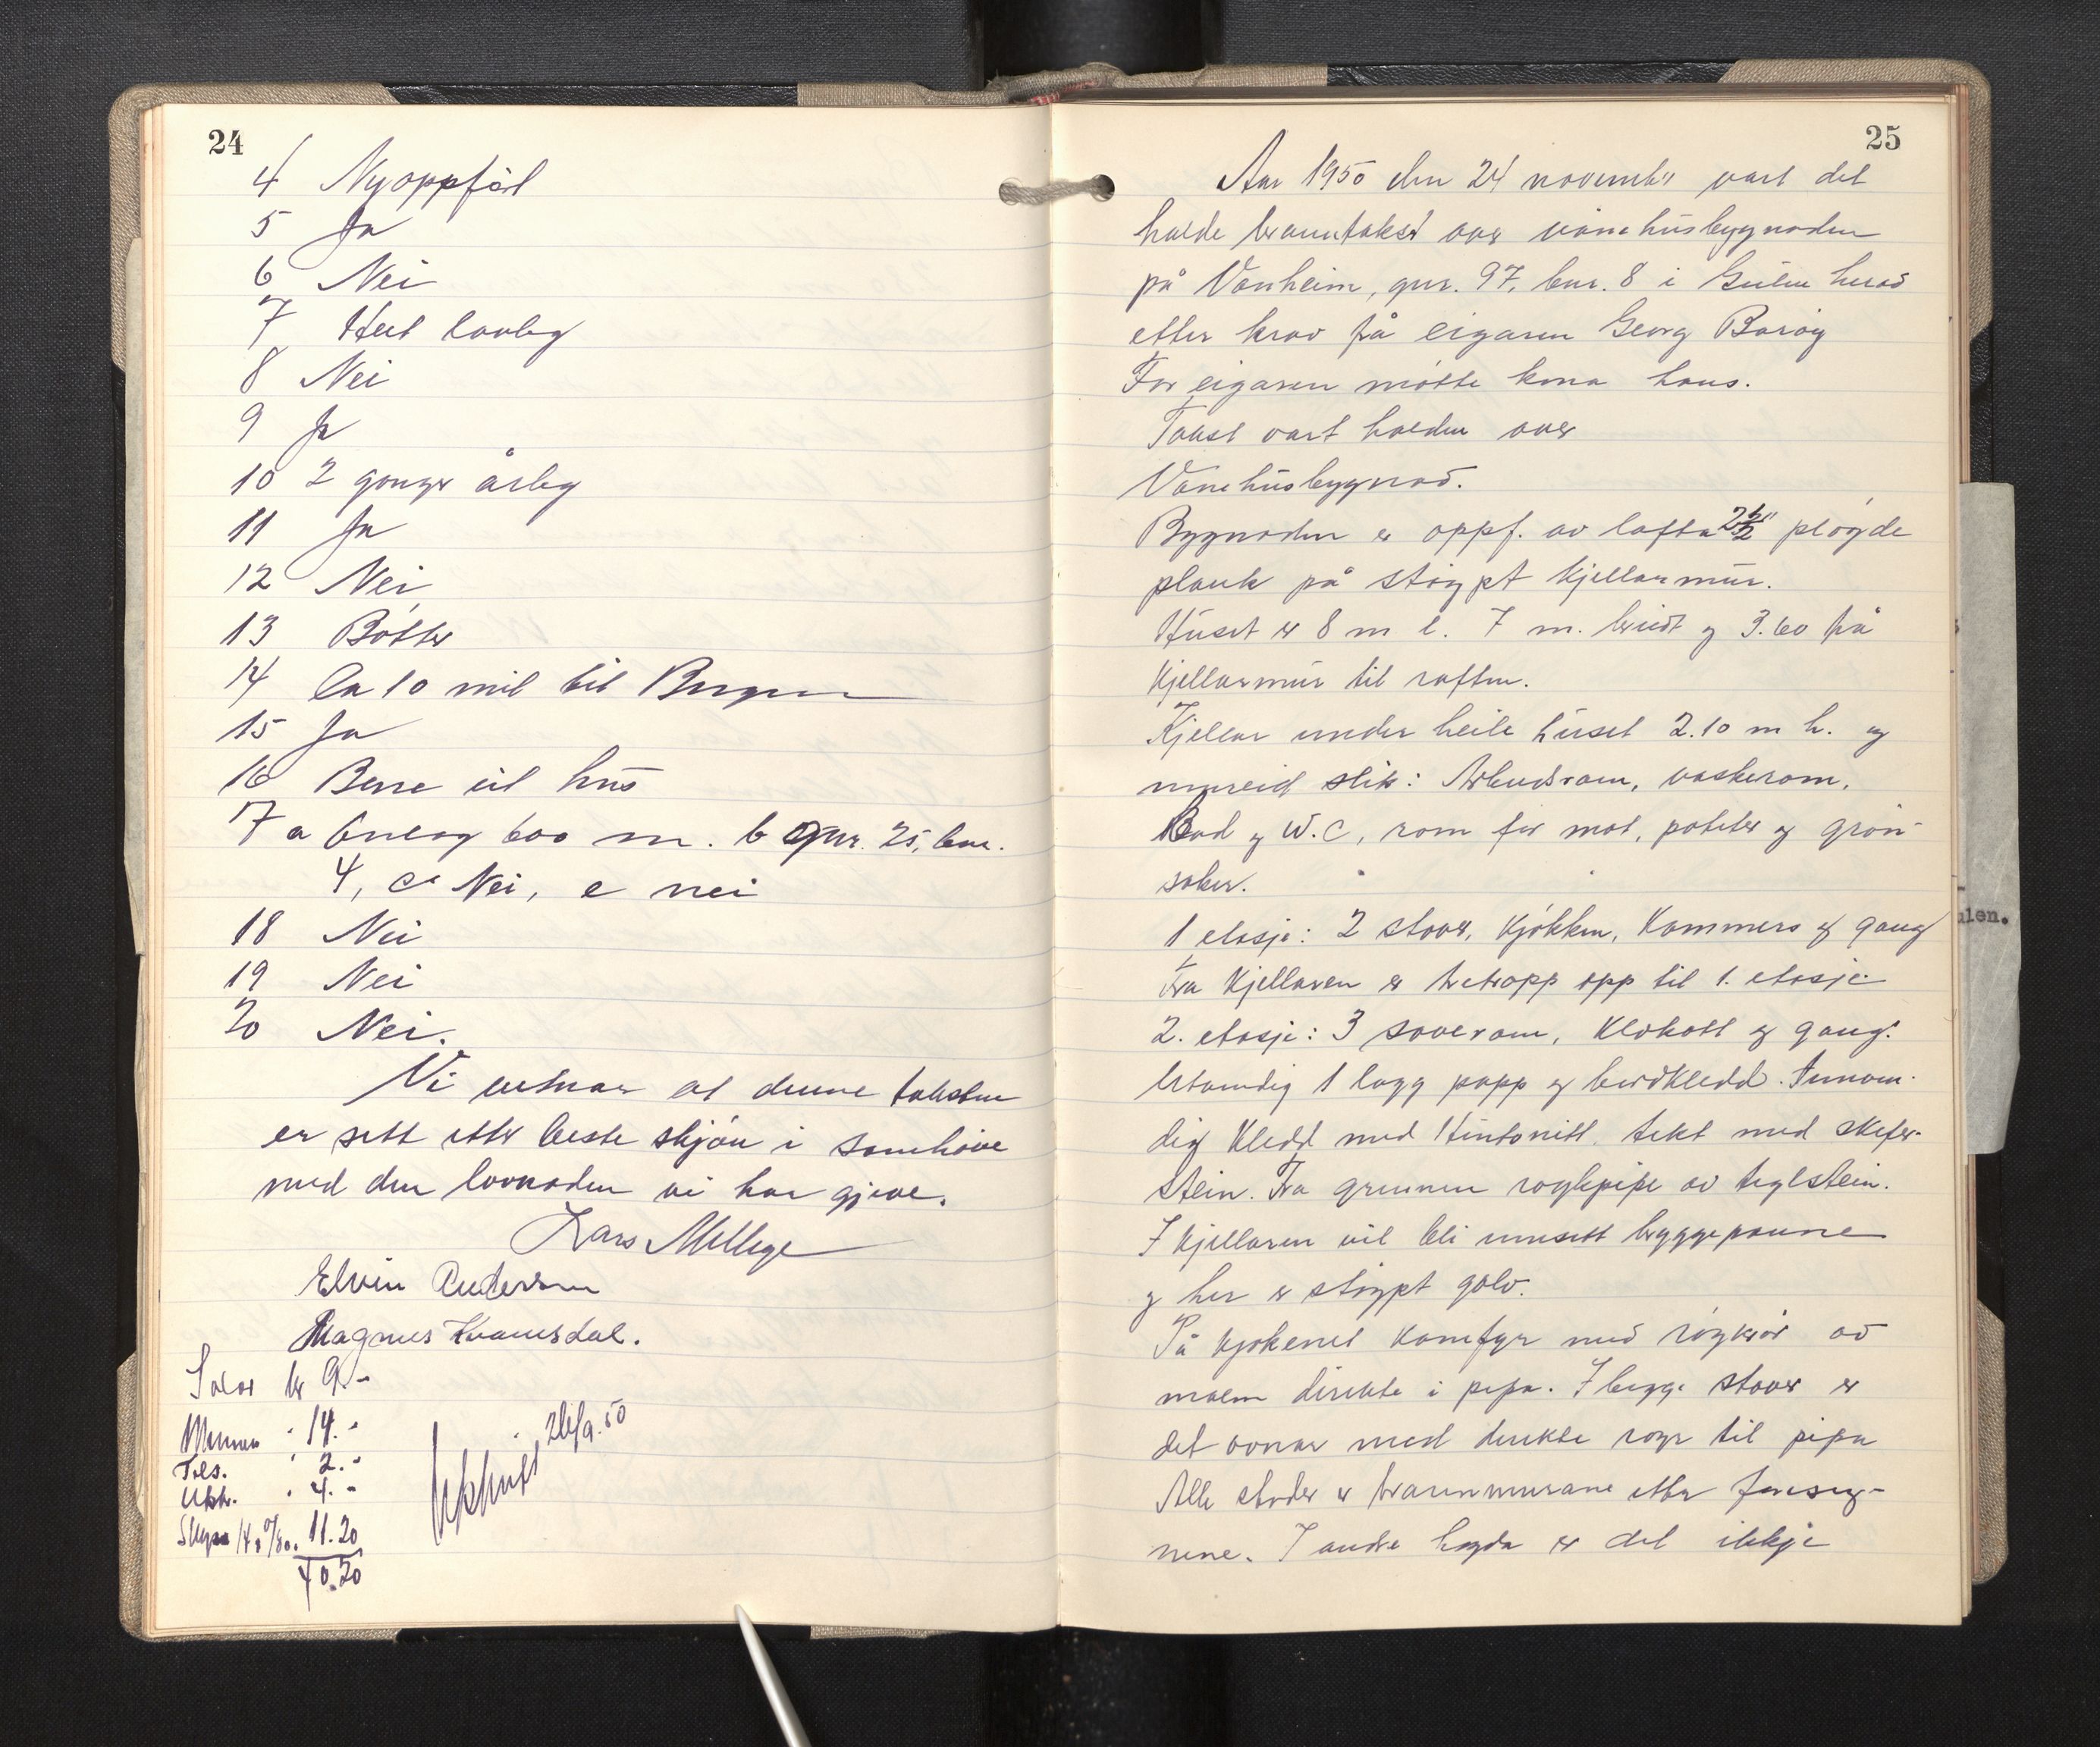 24
4 Nyoppförd
5 Ja
6 Nei
7 Heil lovleg
8 Nei
9 Ja
10 2 gonger årleg
11 Ja
12 Nei
13 Bötter
14 Ca 10 mil til Bergen
15 Ja
16 Berre eit hus
17 a Omlag 600 m. b gnr. 25, bnr.
4, c Nei, e nei
18 Nei
19 Nei
20 Nei.
Vi vitnar at denne taksten
er sett etter beste skjön i samhöve
med den lovnaden vi har gjeve.
Lars Mellege
Elvin Andersen
Magnus Kvamsdal.
Salar kr 9.-
Mennen " 14.-
Tils. " 2.-
Utskr. " 4.-
Skyss 11.20
40.20
Utskrift 26/9.50
25
Aar 1950 den 24 november vart det
halde branntakst over vånehusbygnaden
på Vonheim, gnr. 97, bnr. 8 i Gulen herad
etter krav frå eigaren Georg Boröy
For eigaren møtte kona hans.
Takst vart halden over
Vånehusbygnad.
Bygnaden er oppf. av lafta 2½" plögde
plank på stöypt kjellarmur.
Huset er 8 m l. 7 m. breidt og 3.60 frå
kjellarmur til raften.
Kjellar under heile huset 2.10 m h. og
innreid slik: Arbeidsrom, vaskerom,
Bad og W.C, rom for mat, poteter og grön-
saker.
1 etasje: 2 stover, kjökken, kammers og gang
Fra kjellaren er tretrapp opp til 1. etasje
2. etasje: 3 soverom, klokott og gang.
Utvendig 1 lagg papp og bordkledd. Innven-
dig kledd med Huntonitt. tekt med skifer-
stein. Fra grunnen röykpipe av teglstein.
I kjellaren vil bli innsett bryggepanne
og her er stöypt golv.
På kjökenet komfyr med röykrör av
malm direkte i pipa. I begge stover er
det ovnar med direkte röyr til pipa
Alle stader er brannmurane etter foresegn-
nene. I andre högda er det ikkje
ulen.